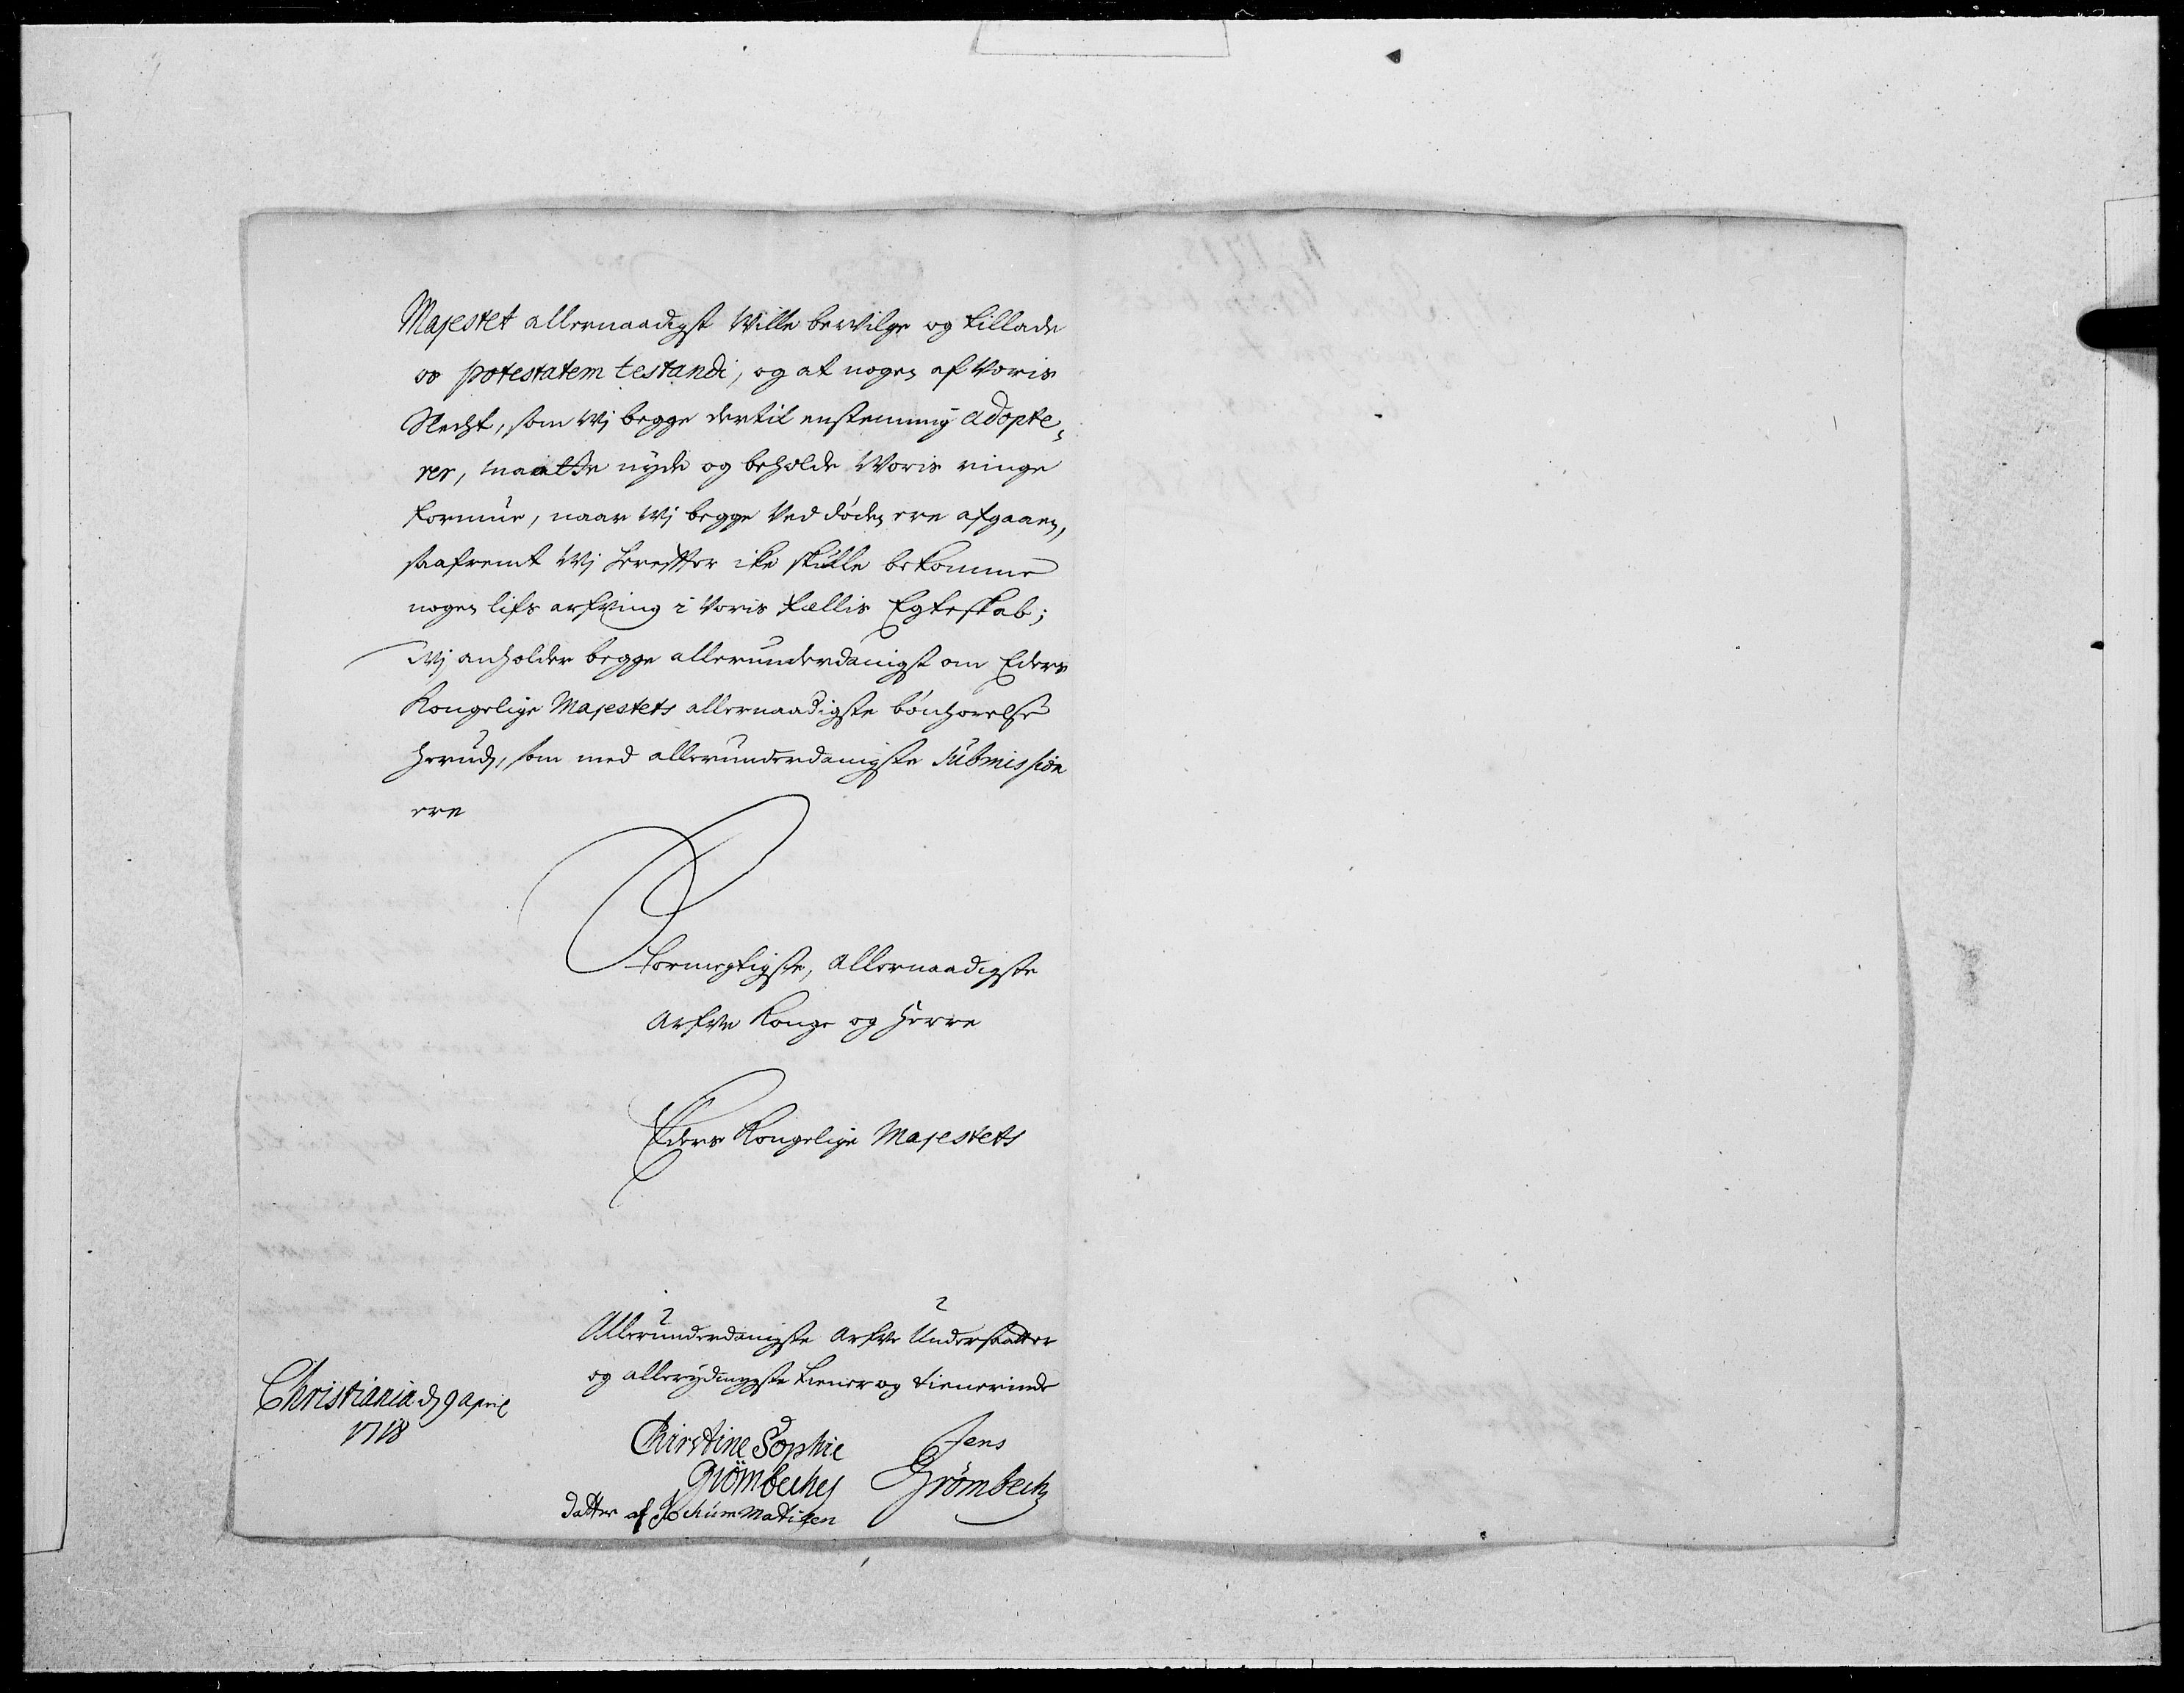 Majestet allernaadigst Wille bevilge og tillade
os potestatem testandi, og at nogen af Voris
Slecht, som Wj begge dertil enstemmig adopte,
rer, maatte nyde og beholde Woris ringe
formue, naar Wj begge Ved døden ere afgaaen,
saafremt Wj herefter ike skulle bekomme
nogen lifs arfving i Voris fællis Egteskab;
Wj anholder begge allerunderdanigst om Eders
Kongelige Majestets allernaadigste bønhørelse
herudj, som med allerunderdanigste submission
ere
Stormegtigste, Allernaadigste
Arfve Konge og Herre
Eders Kongelige Majestets
Allerunderdanigste Arfve Undersaatter
og allerydmygste tiener og tienerinde
Christiania d 9 April
1718
Chirstine Sophie
Grömbeches
datter af Jochum Matisen
Jens
Grömbech